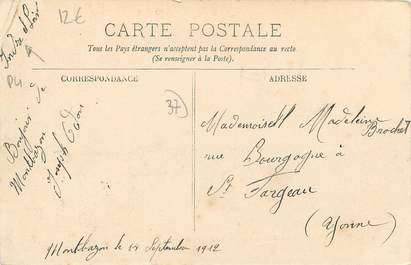 12€
Indre et Loire
CARTE POSTALE
Tous les Pays étrangers n'acceptent pas la Correspondance au recto
(Se renseigner à la Poste).
CORRESPONDANCE
ADRESSE
37
Bonjour de
Montbazon
Joseph
Mademoisell Madeleine
Brochet
rue Bourgogne à
St Fargeau
(Yonne)
Montbazon le Septembre 1912